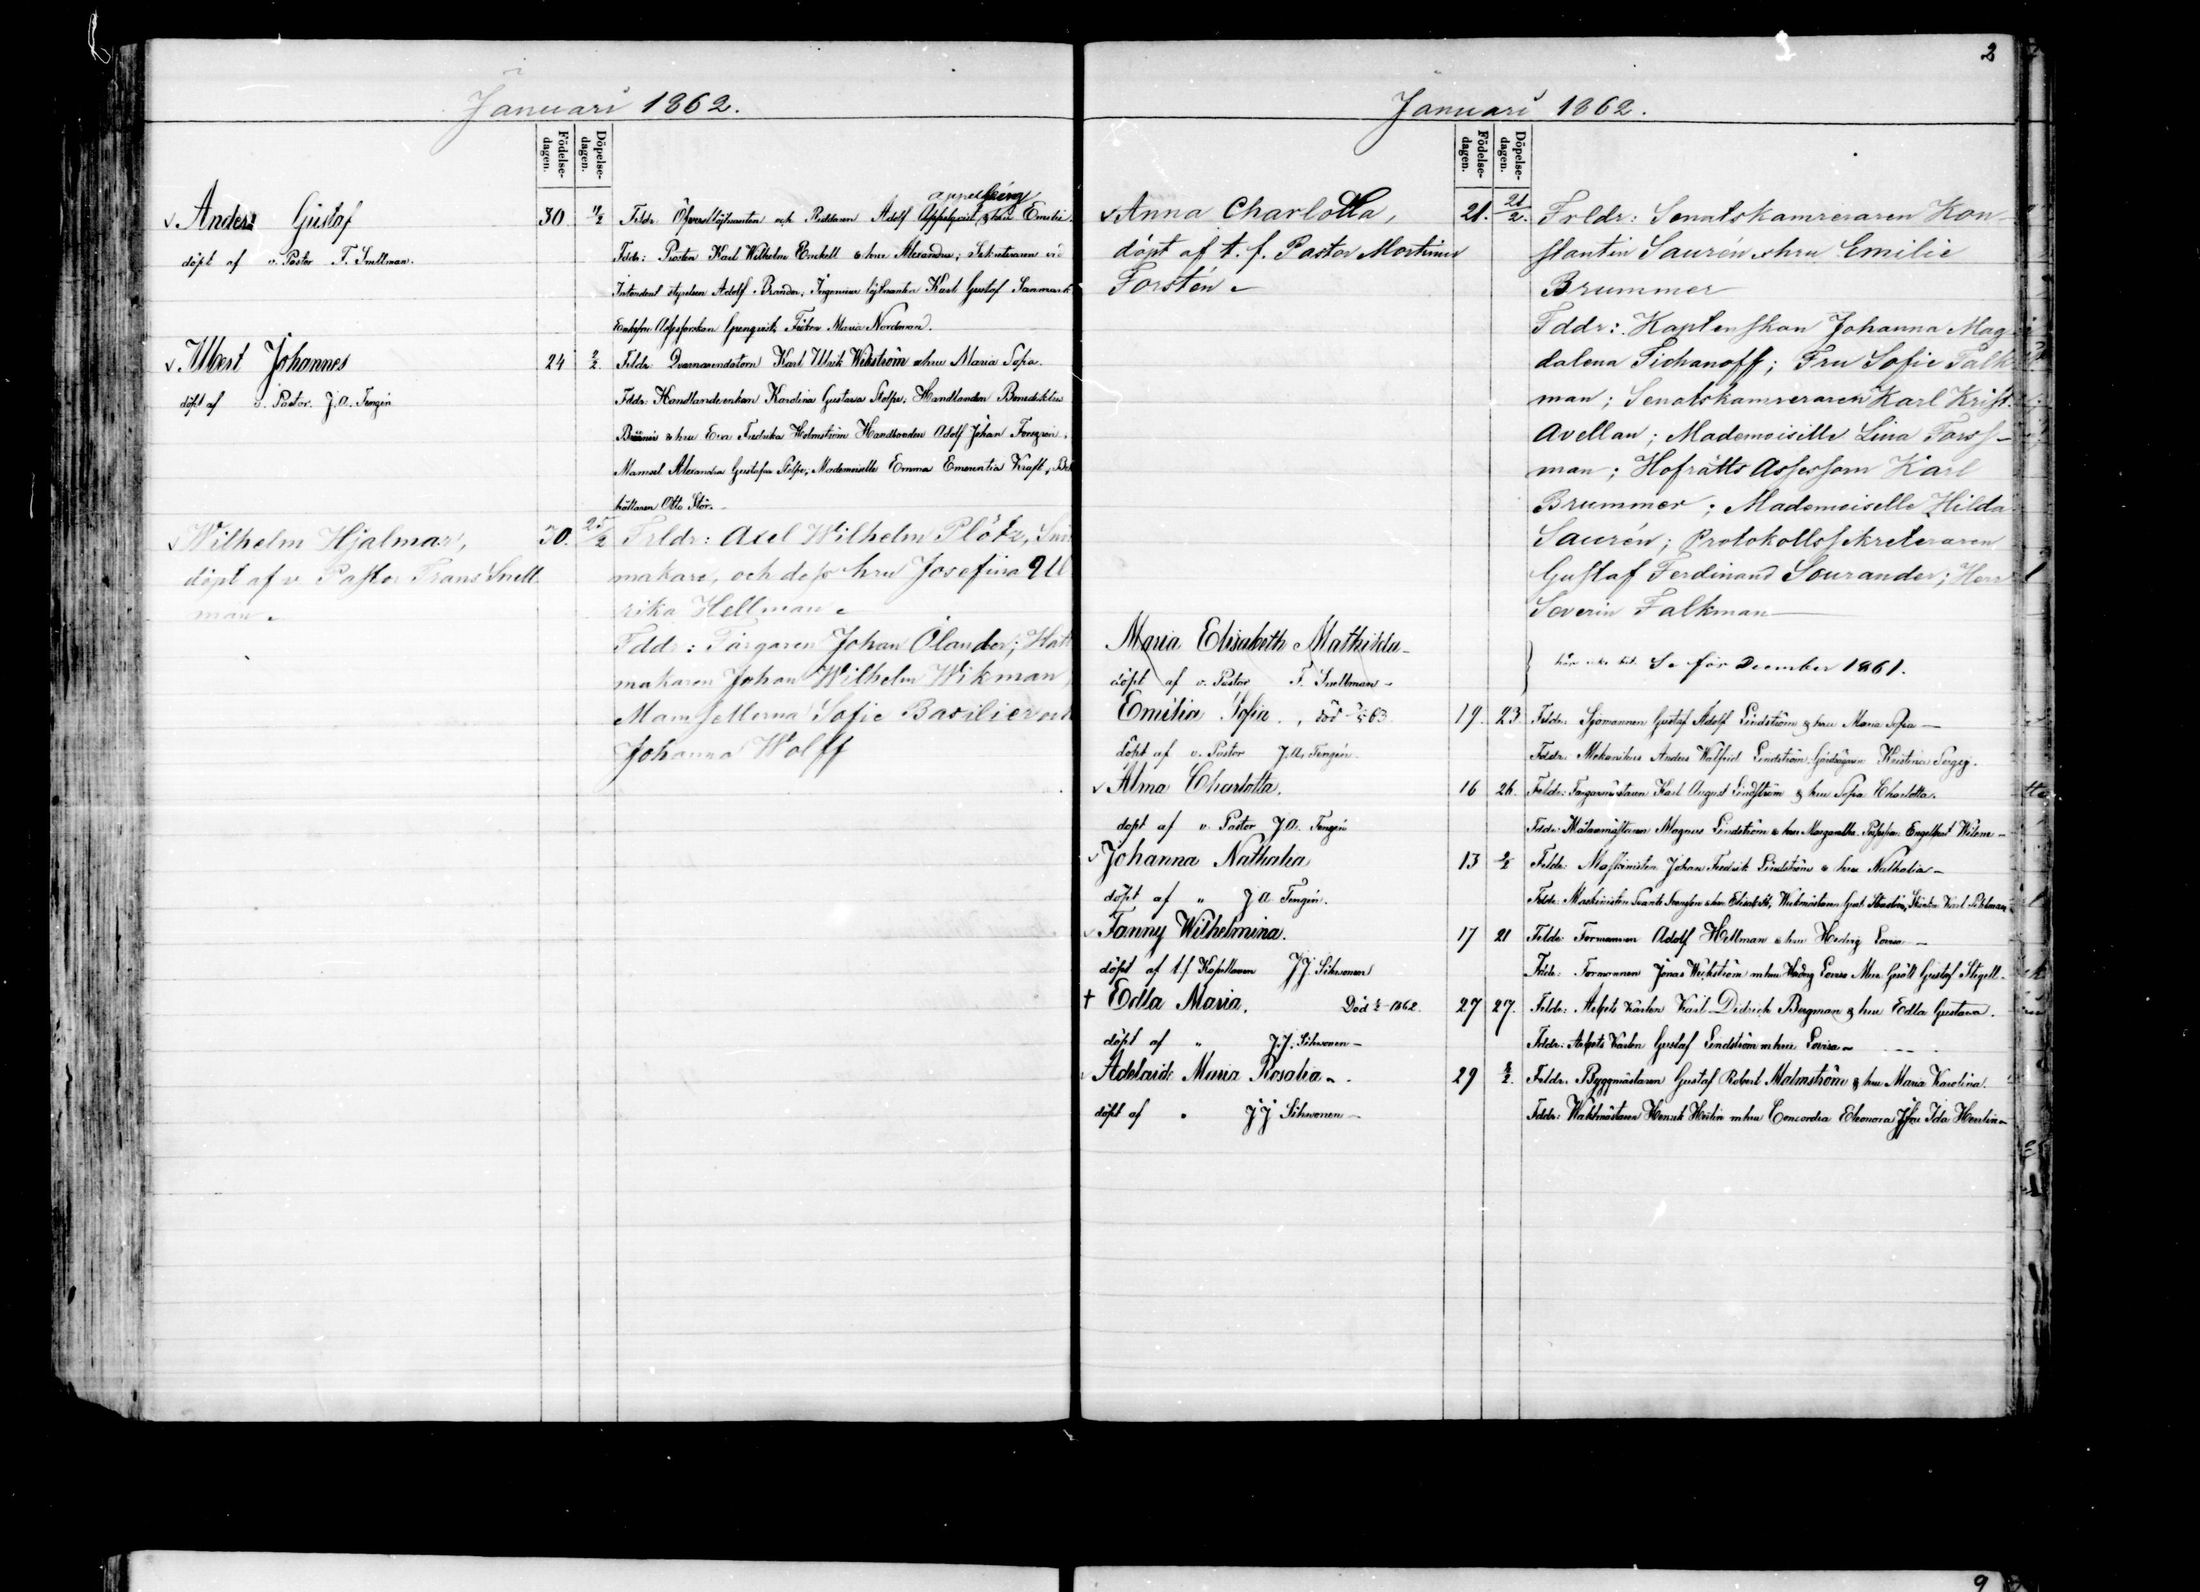 Januari 1862.
Födelse-dagen.
Döpelse-dagen.
Anders Gustaf
döpt af v. Pastor F. Snellman.
30
11/2
Appelberg
Frldr: Öfverstlöjtnanten och Riddaren Adolf & hru Emelie
Fddr: Prosten Karl Wilhelm Enckell & hru Alexandra; Sekreteraren vid
Intendent styrelsen Adolf Brander; Ingeniör löjtnanten Karl Gustaf Sanmark
Enkefru Assessorskan Grenqvist; Fröken Maria Nordman.
Albert Johannes
döpt af v. Pastor. J. A. Tengén
24
2/2.
Frldr: Qvarnarendatorn Karl Ulrik Wikström & hru Maria Sofia.
Fddr: Handlandeenkan Karolina Gustava Stolpe; Handlanden Benediktus
& hru Eva Fredrika Holmström Handlanden Adolf Johan Forsgren,
Mamsel Alexandra Gustafva Stolpe; Mademoiselle Emma Emerentia Kraft, Bok
hållaren Otto Stör.
Wilhelm Hjalmar,
döpt af v Pastor Frans Snell
man.
30.
25/2
Frldr: Axel Wilhelm Plötz,
makare, och dess hru Josefina Ul
rika Hellman.
Fddr: Färgaren Johan Ölander; Hatt
makaren Johan Wilhelm Wikman
Mamsellerna Sofie Basilier och
Johanna Wolff
2
Januari 1862.
Födelse-dagen.
Döpelse-dagen.
Anna Charlotta,
döpt af t. f. Pastor Mortimer
Forstén.
21.
21/2.
Frldr: Senatskamreraren Kon-
stantin Saurén & hru Emilie
Brummer
Fddr: Kaptenskan Johanna Mag
dalena Tichanoff; Fru Sofie Falk
man; Senatskamreraren Karl Krist.
Avellan; Mademoiselle Lina Forss-
man; Hofrätts Assessorn Karl
Brummer; Mademoiselle Hilda
Saurén; Protokollssekreteraren
Gustaf Ferdinand Sourander; Herr
Severin Falkman
Maria Elisabeth Mathilda
döpt af v. Pastor F. Snellman
Se för December 1861.
Emilia Sofia., död 63
döpt af v. Pastor J. A. Tengén.
19.
23.
Frldr: Sjömannen Gustaf Adolf Lindström & hru Maria Sofia
Fddr: Mekanikus Anders Walfrid Lindström Gårdsägaren Kristina Sergeg.
Alma Charlotta.
döpt af v. Pastor J. A. Tengén
16
26.
Frldr: Färgarmästaren Karl August Lindström & hru Sofia Charlotta.
Fddr: Målarmästaren Magnus Lindström & hru Margaretha. Engelbert
Johanna Nathalia
döpt af " J A Tengén.
13
2/2
Frldr: Maskinisten Johan Fredrik Lindström & hru Nathalia
Fddr: Maskinisten Svante & hru Elisabeth, Karl
Fanny Wilhelmina.
döpt af t.f. Kapellanen J J Sihvonen
17
21
Frldr: Formannen Adolf Hellman & hru Hedvig Lovisa
Fddr: Formannen Jonas Wickström m hru Hedvig Lovisa Gustaf
† Edla Maria. Död 1862.
döpt af " J.J. Sihvonen
27
27.
Frldr: Arbets Karlen Karl Didrich Bergman & hru Edla Gustava.
Fddr: Arbets Karlen Gustaf Lindström m hru Lovisa
Adelaide Maria Rosalia.
döpt af " J J Sihvonen
29
2/2.
Frldr: Byggmästaren Gustaf Robert Malmström & hru Maria Karolina.
Fddr: Waktmästaren Henrik m hru Concordia Eleonora Jfru Ida
9